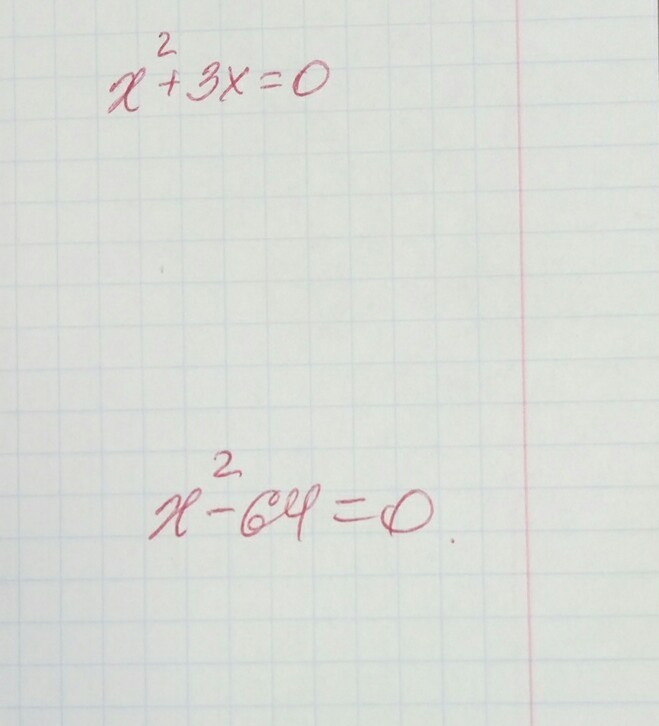 x²+3x=0
x²-64=0.